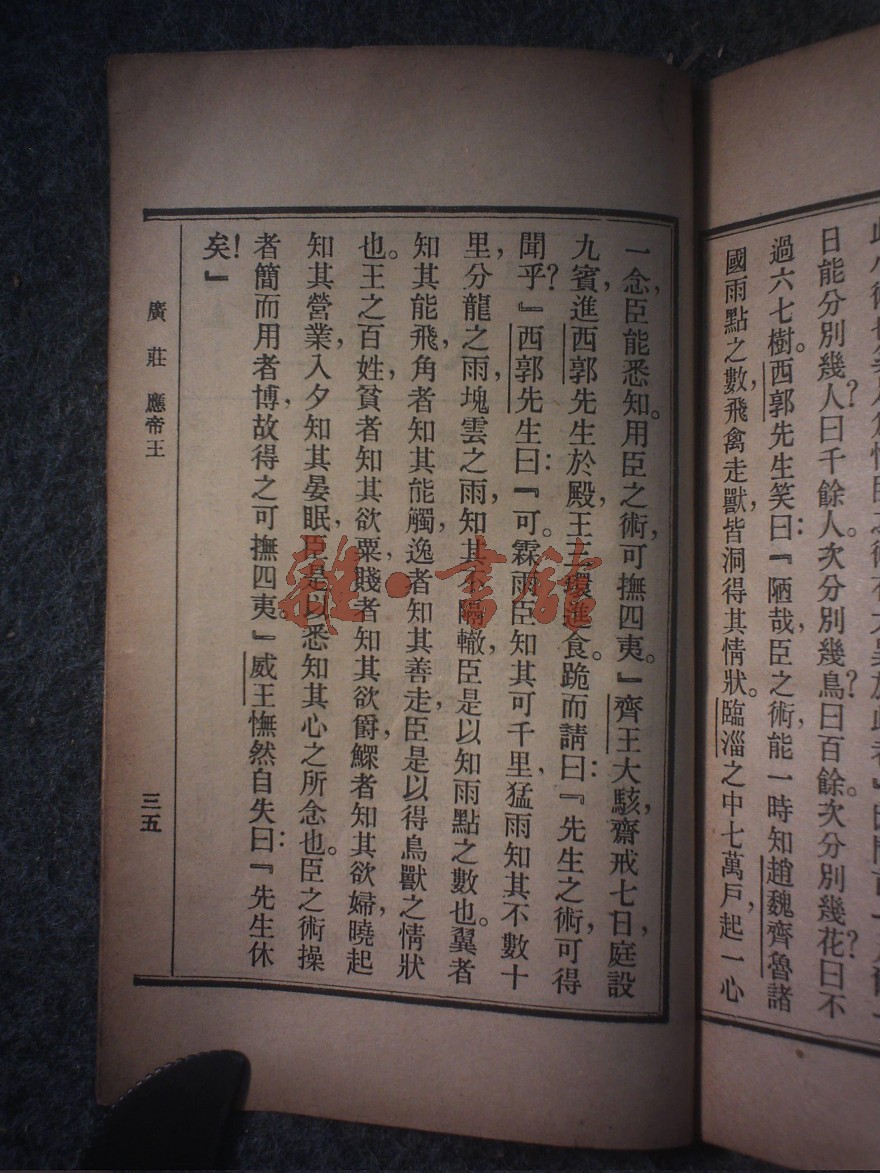 日能分別幾人?曰千餘人。次分別幾鳥?曰百餘。次分別幾花?曰不
過六七樹。西郭先生笑曰:『陋哉,臣之術,能一時知趙魏齊魯諸
國雨點之數,飛禽走獸,皆洞得其情狀。臨淄之中七萬戶,起一心
一念,臣能悉知。用臣之術,可撫四夷。』齊王大駭,齋戒七日,庭設
九賓,進西郭先生於殿,王三環進食。跪而請曰:『先生之術,可得
聞乎?』西郭先生曰:『可。霖雨臣知其可千里,猛雨知其不數十
里,分龍之雨,塊雲之雨,知其不隔轍,臣是以知雨點之數也。翼者
知其能飛,角者知其能觸,逸者知其善走,臣是以得鳥獸之情狀
也。王之百姓,貧者知其欲粟,賤者知其欲爵,鰥者知其欲婦,曉起
知其營業,入夕知其晏眠,臣是以悉知其心之所念也。臣之術操
者簡而用者博,故得之可撫四夷。』威王憮然自失曰:『先生休
矣!』
廣莊 應帝王
三五
雜·書館